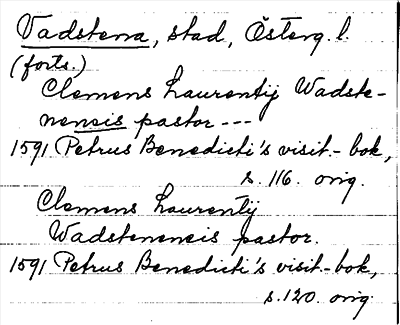 Vadstena, stad, Österg. l.
(forts.)
Clemens Laurentij Wadste-
nensis pastor ---
1591 Petrus Benedicti's visit.-bok,
s. 116. orig.
Clemens Laurentij
Wadstenensis pastor.
1591 Petrus Benedicti's visit.-bok,
s. 120. orig.